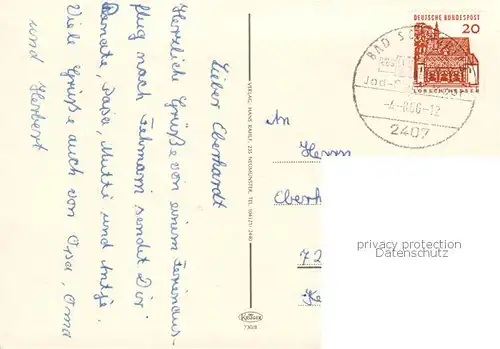 Lieber Eberhardt
Herzliche Grüße von einem Ferienaus-
flug nach Fehmarn sendet Dir
Renate, Papa, Mutti und Antje.
Viele Grüße auch von Opa, Oma
und Herbert
VERLAG: HANS RAHE, 235 NEUMÜNSTER, TEL.
KRÜGER
DEUTSCHE BUNDESPOST
20
LORSCH/HESSEN
BAD S
Jod-
-4.-8.66-12
2407
An
Herrn
Eberh
72
privacy protection
Datenschutz